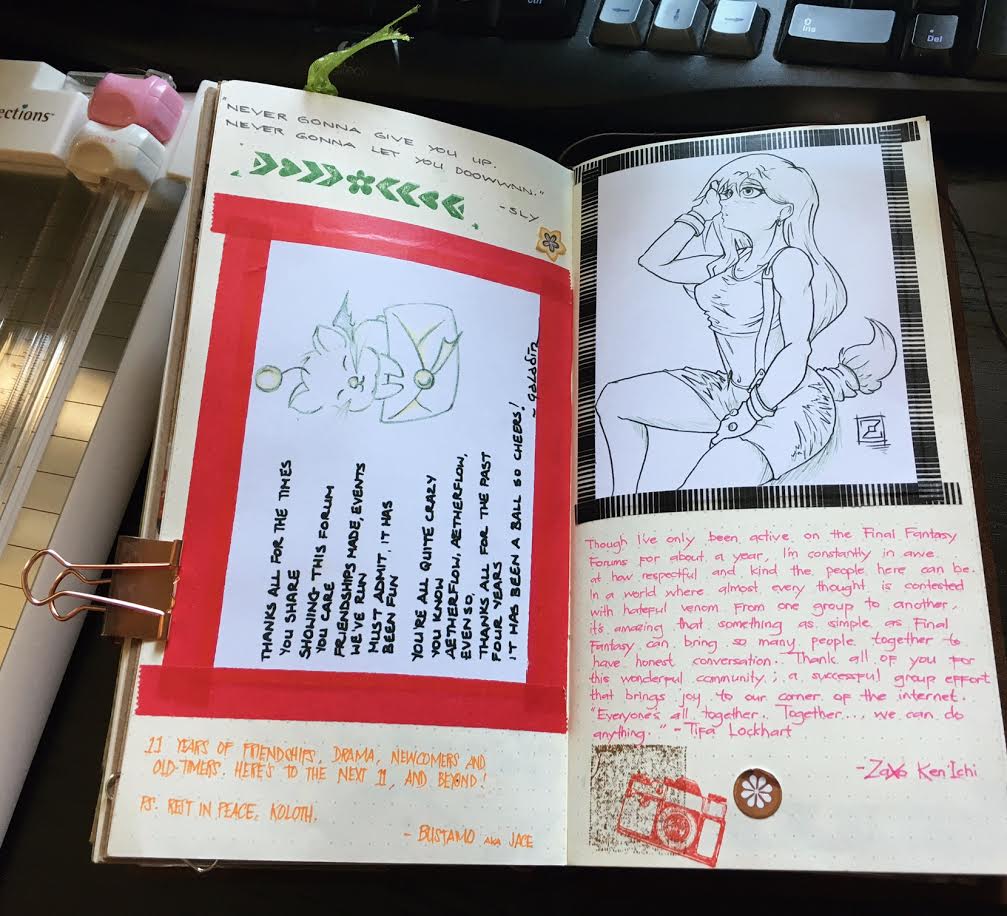 ections™
Ctrl
0
Ins
.
Del
"NEVER GONNA GIVE YOU UP.
NEVER GONNA LET YOU DOOWWNN."
-SLY
THANKS ALL FOR THE TIMES
YOU SHARE
SHOWING THIS FORUM
YOU CARE
FRIENDSHIPS MADE, EVENTS
WE'VE RUN
MUST ADMIT, IT HAS
BEEN FUN
YOU'RE ALL QUITE CRAZY
YOU KNOW
AETHERFLOW, AETHERFLOW,
AETHERFLOW,
EVEN SO,
THANKS ALL FOR THE PAST
FOUR YEARS
IT HAS BEEN A BALL SO CHEERS!
11 YEARS OF FRIENDSHIPS, DRAMA, NEWCOMERS AND
OLD-TIMERS. HERE'S TO THE NEXT 11, AND BEYOND!
PS. REST IN PEACE, KOLOTH.
- BUSTAMO AKA JACE
Z
Though I've only been active on the Final Fantasy
Forums for about a year, I'm constantly in awe
at how respectful and kind the people here can be.
In a world where almost every thought is contested
with hateful venom from one group to another,
it's amazing that something as simple as Final
Fantasy can bring so many people together to
have honest conversation. Thank all of you for
this wonderful community; a successful group effort
that brings joy to our corner of the internet.
"Everyone's all together. Together..., we can do
anything." - Tifa Lockhart
- Ken'Ichi